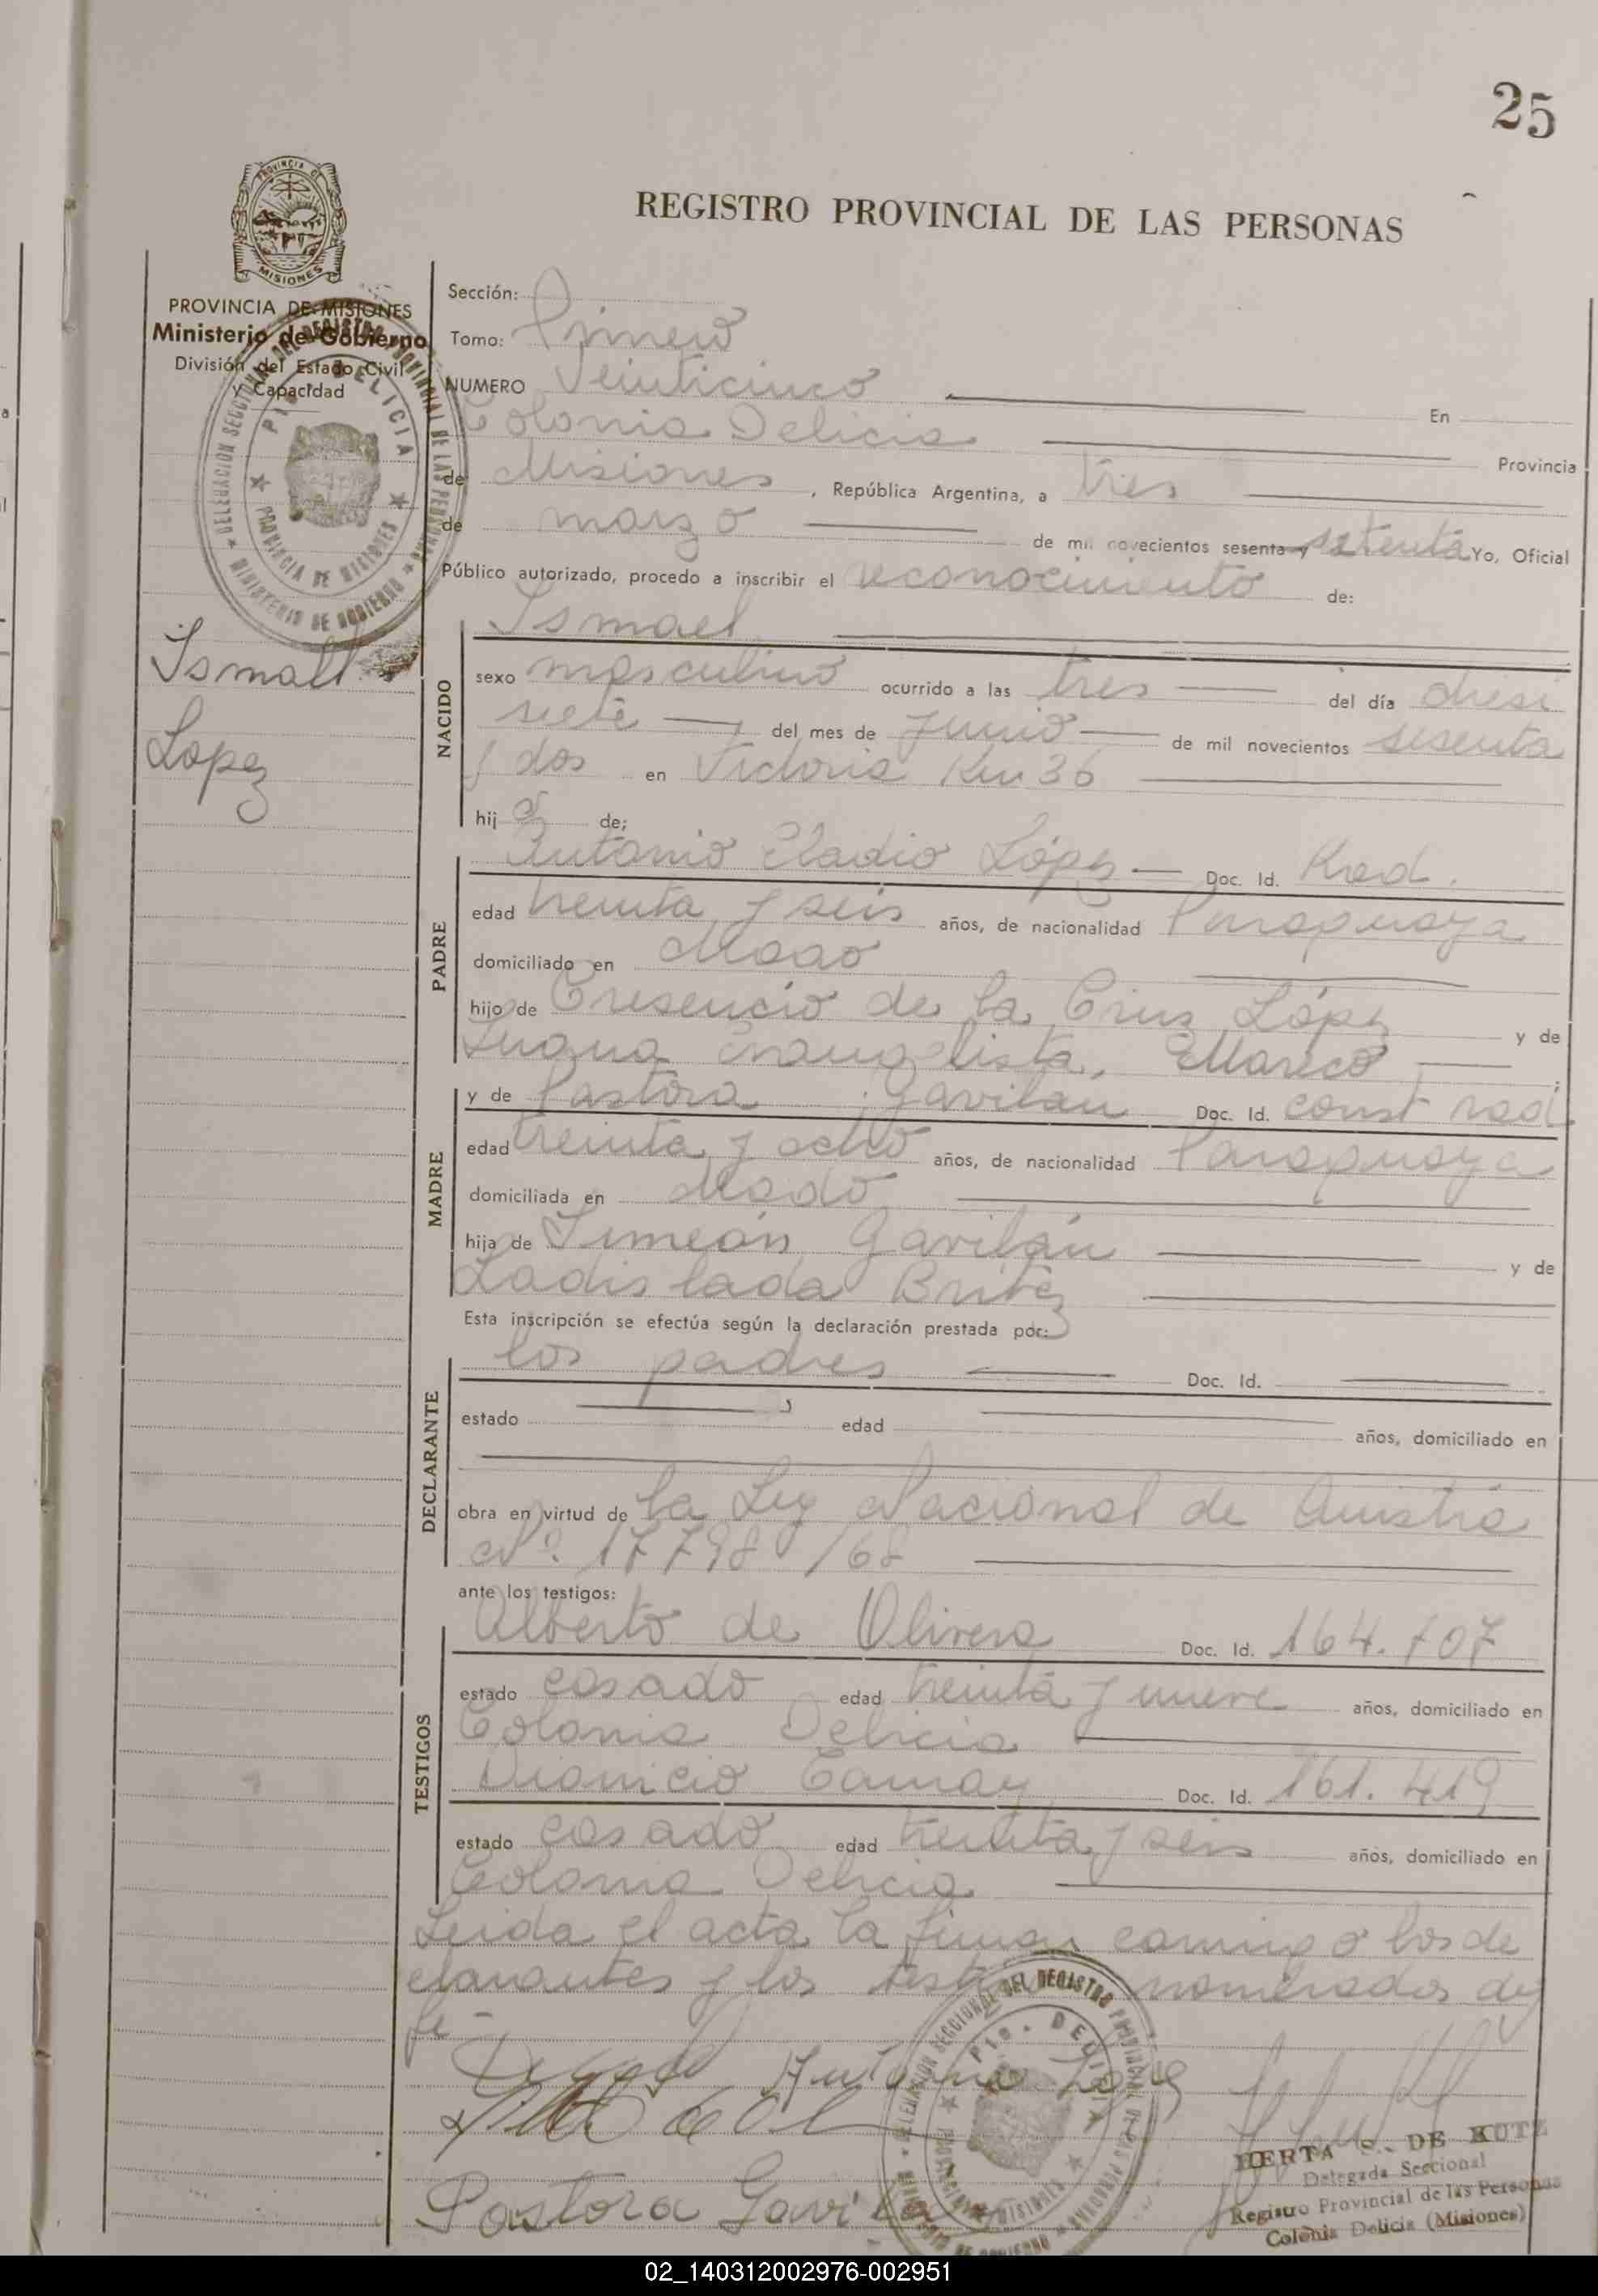 25
PROVINCIA DE MISIONES
REGISTRO PROVINCIAL DE LAS PERSONAS
PROVINCIA DE MISIONES
Ministerio de Gobierno
División del Estado Civil
y Capacidad
DELEGACION SECCIONAL DEL REGISTRO PROVINCIAL DE LAS PERSONAS
MINISTERIO DE GOBIERNO
PTO. DELICIA
PROVINCIA DE MISIONES
Ismael
Lopez
Sección:
Tomo: Primero
NUMERO Veinticinco En
Colonia Delicia Provincia
de Misiones, República Argentina, a tres
de marzo de mil novecientos sesenta y setenta Yo, Oficial
Público autorizado, procedo a inscribir el reconocimiento de:
Ismael
NACIDO
sexo masculino ocurrido a las tres del día diesi
siete, del mes de Junio de mil novecientos sesenta
y dos en Victoria Km 36
hijo de;
PADRE
Antonio Eladio López Doc. Id. Rad.
edad treinta y seis años, de nacionalidad Paraguaya
domiciliado en Mado
hijo de Cresencio de la Cruz López y de
Juana Evangelista, Mareco
MADRE
y de Pastora Gavilan Doc. Id. const rad
edad treinta y ocho años, de nacionalidad Paraguaya
domiciliada en Mado
hija de Simeón Gavilán y de
Ladislada Britez
Esta inscripción se efectúa según la declaración prestada por:
DECLARANTE
los padres Doc. Id.
estado edad años, domiciliado en
obra en virtud de la Ley Nacional de Anistia
Nº. 17798/68
ante los testigos:
TESTIGOS
Alberto de Olivera Doc. Id. 164.707
estado casado edad treinta y nueve años, domiciliado en
Colonia Delicia
Dionicio Doc. Id. 161.419
estado casado edad treinta y seis años, domiciliado en
Colonia Delicia
Leida el acta la firman conmigo los de
clarantes y los testigos nombrados doy
fe-
Antonio Lopez
Pastora Gavilan
DELEGACION SECCIONAL DEL REGISTRO PROVINCIAL DE LAS PERSONAS
PTO. DELICIA
HERTA S. DE KUTZ
Delegada Seccional
Registro Provincial de las Personas
Colonia Delicia (Misiones)
02_140312002976-002951